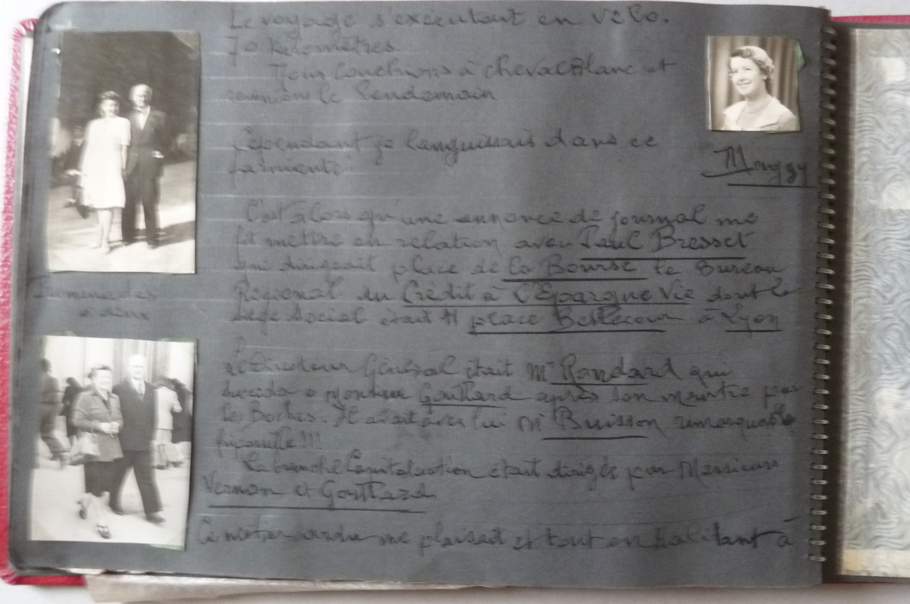 Le voyage s'exécutant en vélo.
70 kilomètres.
Nous couchions à cheval Blanc et
revenions le lendemain
Cependant je languissais dans ce
farniente.
Maggy
C'est alors qu'une annonce de journal me
fit mettre en relation avec Paul Bresset
qui dirigeait place de la Bourse le Bureau
Régional du Crédit à l'Epargne Vie dont le
siège social était place Bellecour à Lyon
Promenades
le Directeur Général était Mr Randard qui
succéda a monsieur Gouttard après son meurtre par
les Boches. Il avait avec lui Mr Buisson remarquable
fripouille!!!
La branche Capitalisation était dirigée par Messieurs
Vernon et Gouttard
Ce métier me plaisait et tout en habitant à